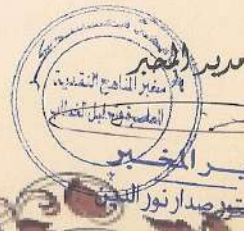 مدير المخبر
مخبر المناهج النقدية
المعاصرة وتحليل الخطاب
مدير المخبر
الدكتور صدار نور الدين